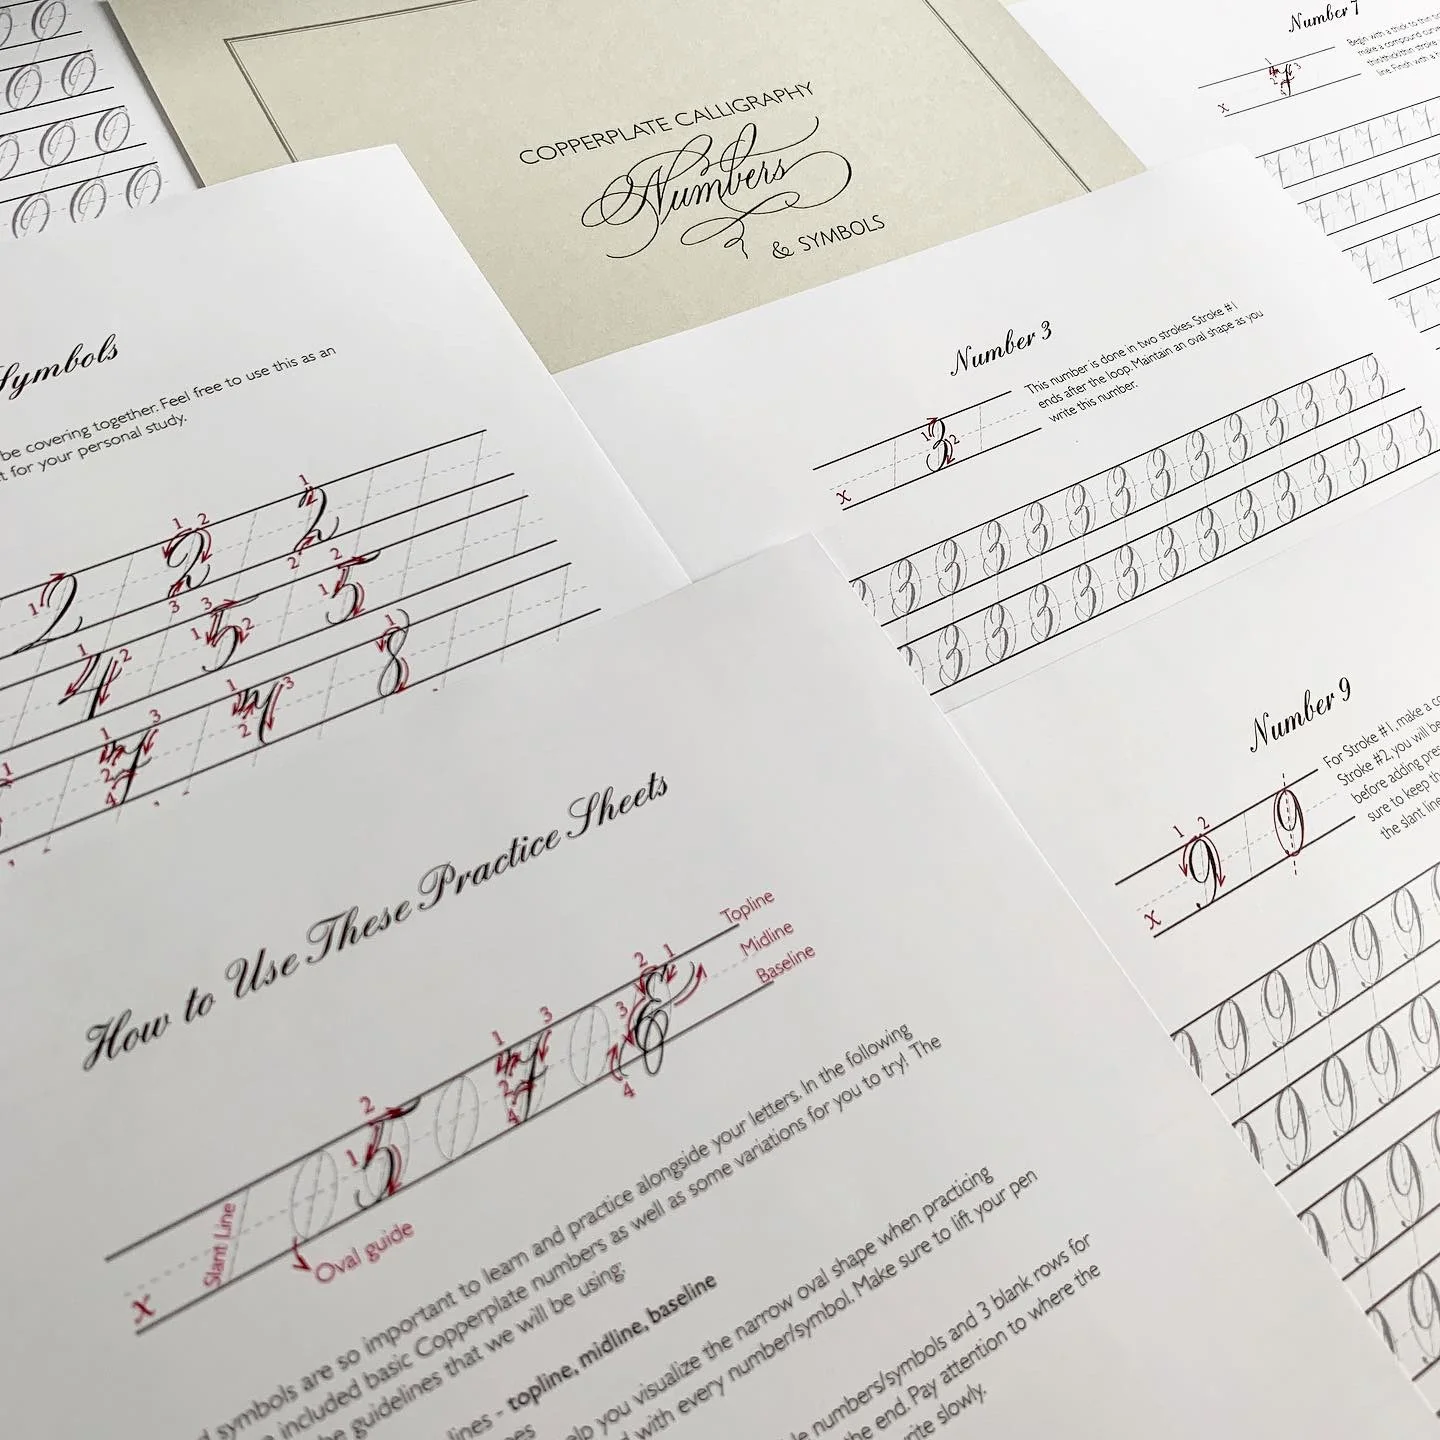 COPPERPLATE CALLIGRAPHY
Numbers
& SYMBOLS
Number 7
Begin with a thick to thin
make a compound curve
thick/thick/thin stroke
line. Finish with a
x
Symbols
be covering together. Feel free to use this as an
for your personal study.
2 2 2
4 5 5
7 7 8
Number 3
This number is done in two strokes. Stroke #1
ends after the loop. Maintain an oval shape as you
write this number.
x
3
3 3 3 3 3 3 3 3 3 3 3 3
3 3 3 3 3 3 3 3 3 3 3
Number 9
For Stroke #1, make a
Stroke #2, you will be
before adding
sure to keep
the slant line
x
9 9
9 9 9 9 9
9 9 9 9 9
9 9 9
9
How to Use These Practice Sheets
Topline
Midline
Baseline
5 7 &
Slant Line
Oval guide
x
symbols are so important to learn and practice alongside your letters. In the following
included basic Copperplate numbers as well as some variations for you to try! The
guidelines that we will be using:
lines - topline, midline, baseline
you visualize the narrow oval shape when practicing
with every number/symbol. Make sure to lift your pen
numbers/symbols and 3 blank rows for
the end. Pay attention to where the
slowly.